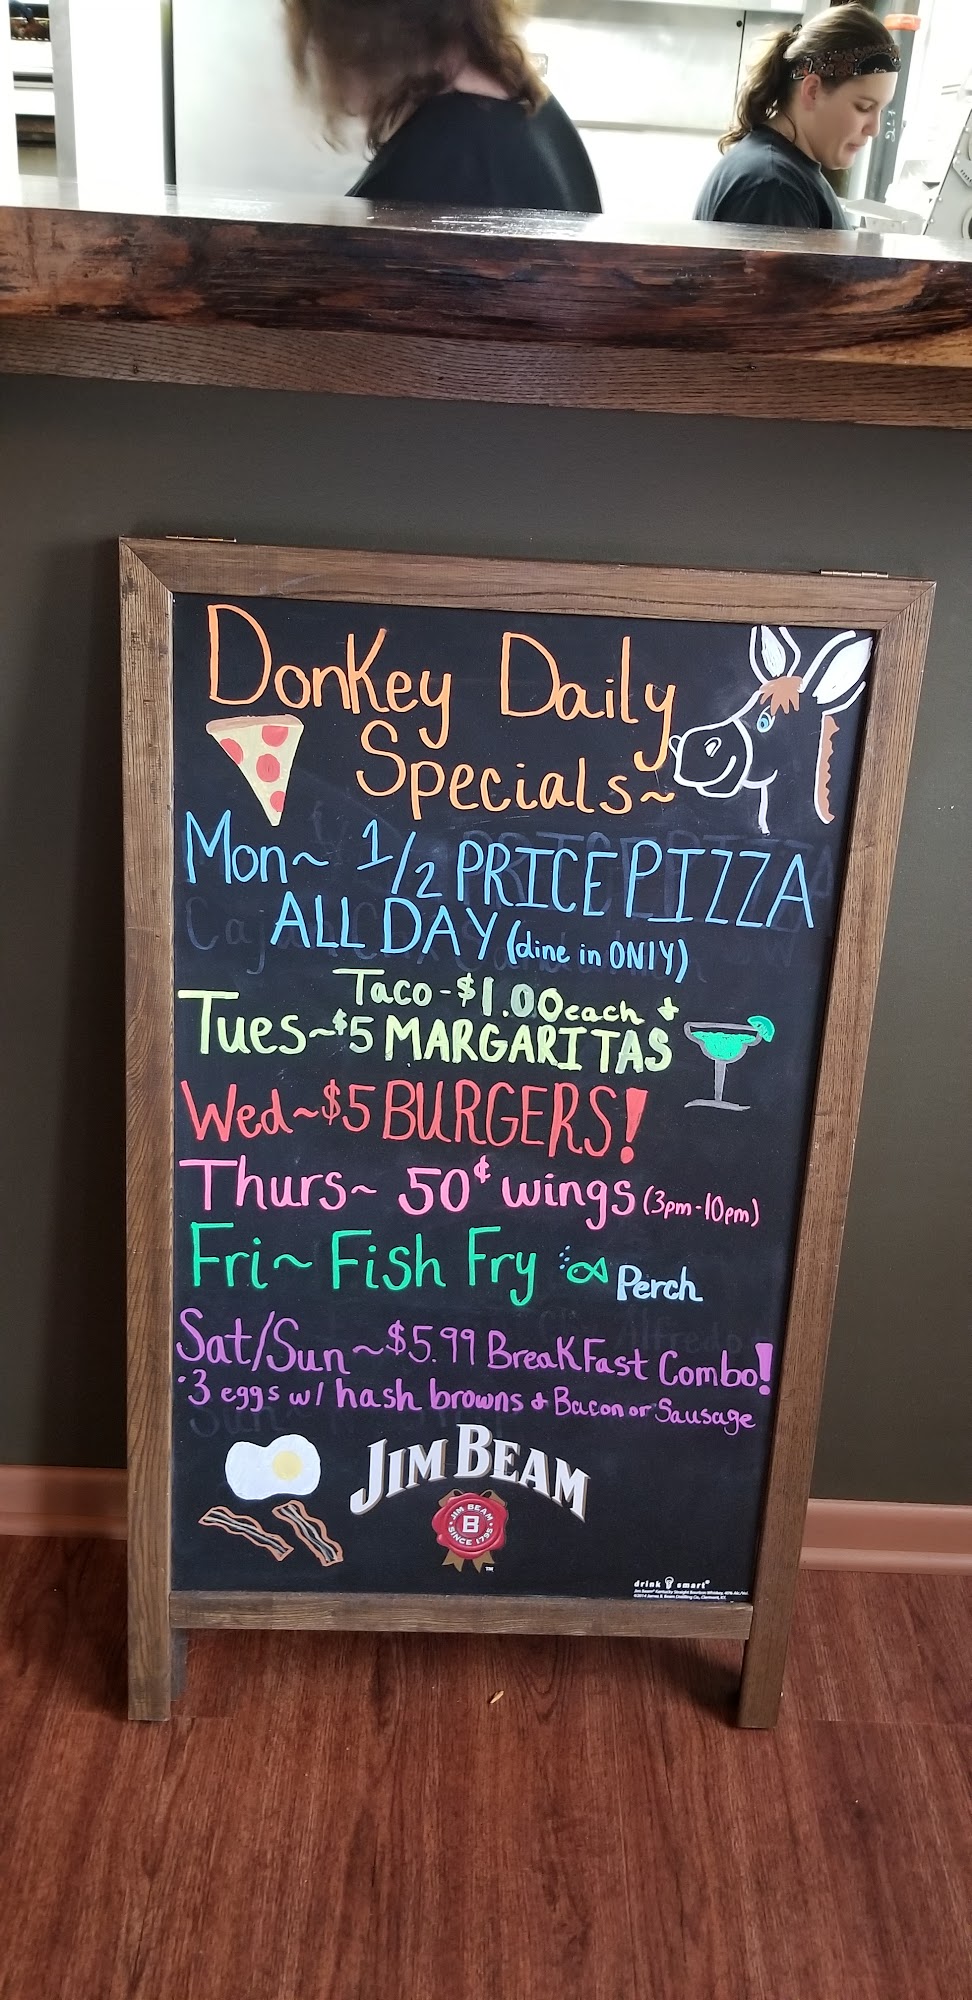 Donkey Daily
Specials~
Mon~ 1/2 PRICE PIZZA
ALL DAY (dine in ONLY)
Taco-$1.00 each &
Tues~$5 MARGARITAS
Wed~$5 BURGERS!
Thurs~ 50¢ wings (3pm-10pm)
Fri~ Fish Fry Perch
Sat/Sun~$5.99 BreakFast Combo!
·3 eggs w/ hash browns & Bacon or Sausage
JIM BEAM
JIM BEAM
B
SINCE 1795
TM
drink smart®